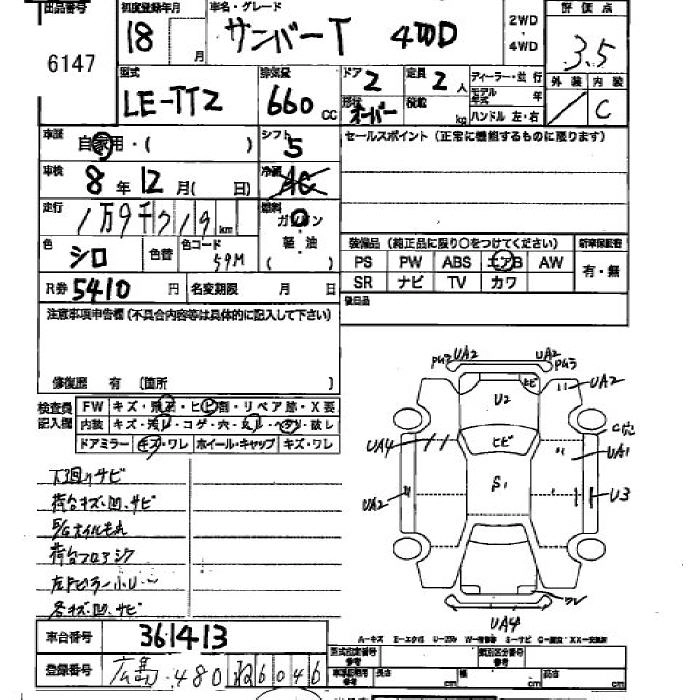 出品番号 初度登録年月 車名・グレード 2WD 評価点
6147 18 月 サンバーT 4WD ・4WD 3.5
型式 排気量 ドア 定員 ディーラー・並行 外装 内装
LE-TT2 660 cc 2 2人 モデル年式 年 C
形状 オーバー 積載 kg ハンドル 左・右
車歴 自家用・( ) シフト 5 セールスポイント(正常に機能するものに限ります)
車検 8年 12月( 日) 冷房 AC
走行 1万9千719 km 燃料 ガソリン
軽油
( )
色 シロ 色替 色コード 59M 装備品(純正品に限り○をつけてください) 新車保証書
PS PW ABS エアB AW 有・無
R券 5410円 名変期限 月 日 SR ナビ TV カワ
後日品
注意事項申告欄(不具合内容等は具体的に記入して下さい)
修復歴 有 〔箇所 〕
検査員 FW キズ・飛石・ヒビ割・リペア跡・X要
記入欄 内装 キズ・汚レ・コゲ・穴・スレ・ヘタリ・破レ
ドアミラー キズ・ワレ ホイール・キャップ キズ・ワレ
下廻りサビ
荷台キズ.凹.サビ
荷台フロアシワ
各キズ.凹.サビ
UA2 UA2
ヒビ UA2
U2
UA4 ヒビ UA1
UA2 S1 U3
ワレ
UA4
A-キズ E-エクボ U-凹み
車台番号 361413
登録番号 広島 480 ね 6046
型式指定番号 類別区分番号
長さ cm 幅 cm 高さ cm